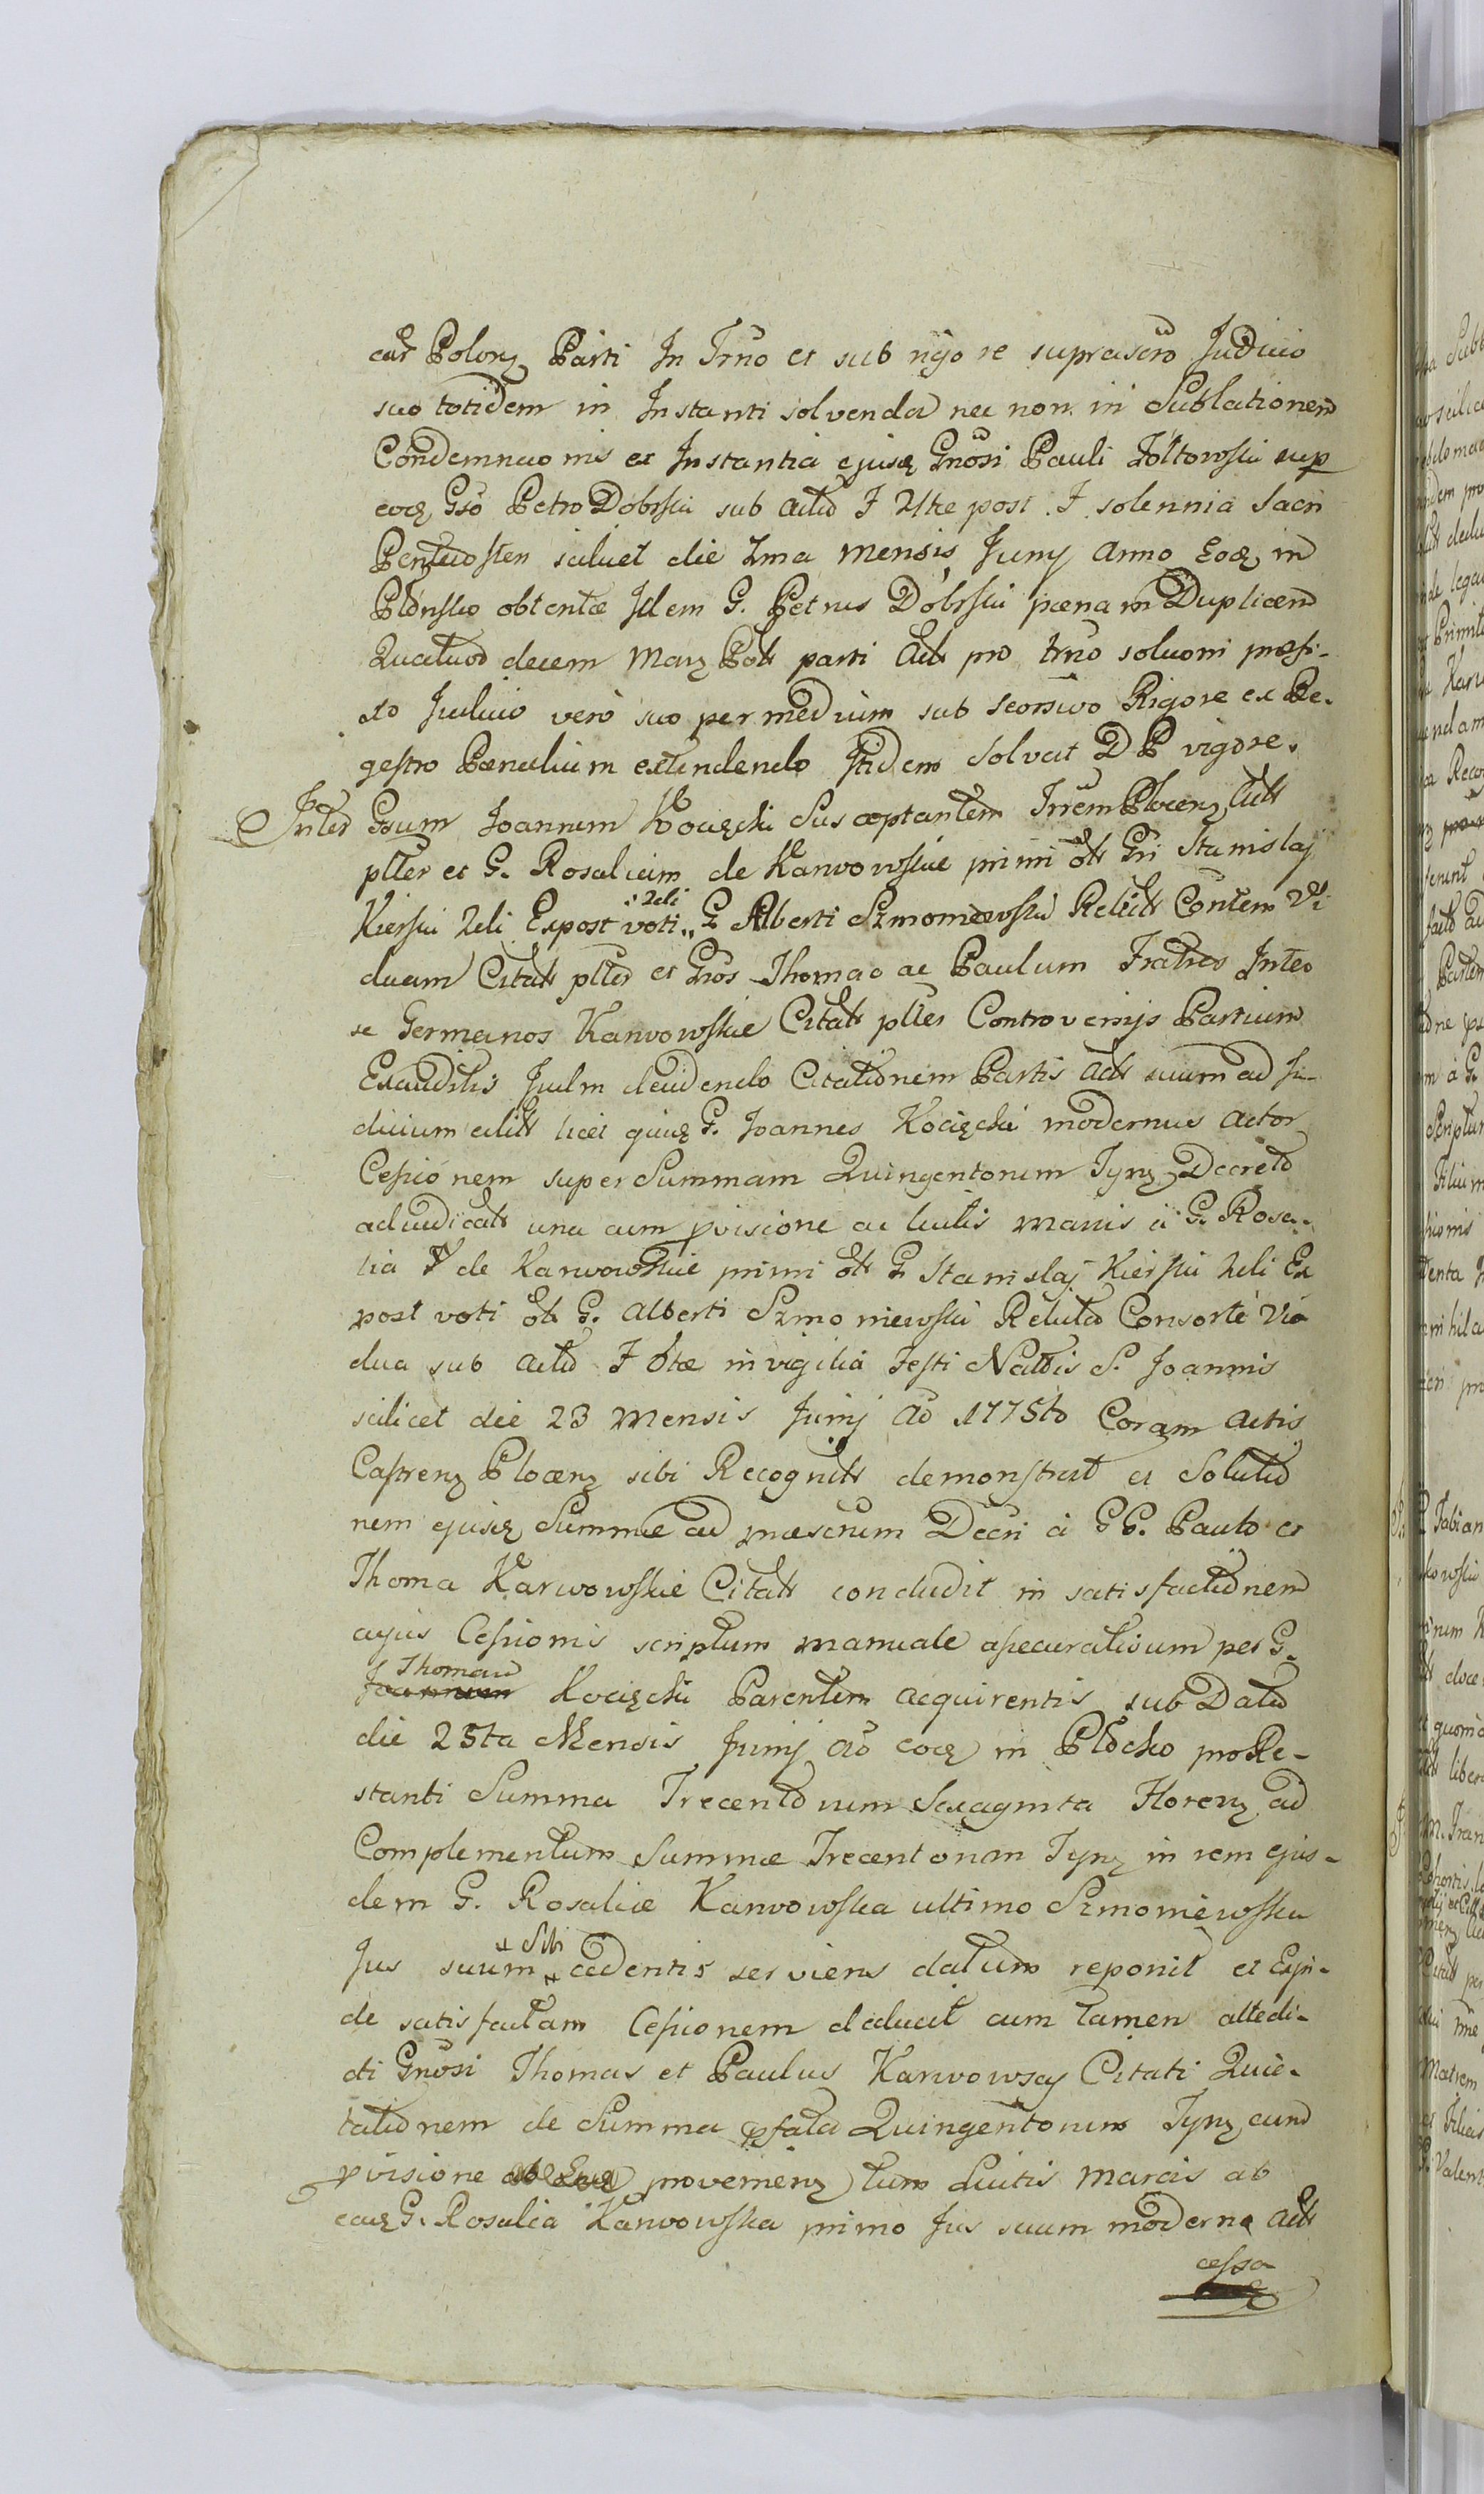 Polonz Parti In Trno et sub rigore suprascro Judicio
suo totidem in Instanti solvendo nec non in Sublationem
Condemnaonis ex Instantia ejusq Gnosi Pauli Zołtowski sup
eoq Gso Petro Dobrski sub Actu F 2tae post F solennia Sacri
Pentecosten scilicet die 2ma mensis Juny Anno Eoq in
Płonsko obtentae Idem G. Petrus Dobrski paenam Duplicem
Quatuor decem Marz Polt parti Act pro trno soluoni praefi-
xto Judicio verò suo per medium sub seorsivo Rigore ex Re-
gestro Paenalium extendendo Itidem Solvat DP vigore.
Inter Gsum Joannem Kocięcki Susceptantem Trrem Plocenz Act
plter et G. Rosaliam de Karwowskie primi ott Gsi Stanislaj
Kierski 2di Expost voti 2di G Alberti Szmoniewski Relict Contem Vi
duam Citat plter et Gsos Thomae ac Paulum Fratres Inter
se Germanos Karwowskie Citatt plter Controversijs Partium
Exauditis Judm decidendo Citationem Partis Act suum ad Ju-
dicium licet G. Joannes Kocięcki modernus Actor
Cessionem super Summam Quingentorum Tynz Decreto
adiudicatt una cum pvisione ac luitis marcis à G. Rosa-
lia de Karwowskie primi ott G Stanislaj Kierski 2di Ex
post voti ott G. Alberti Szmoniewski Relicta Consorte Vi
dua sub Actu F 6tae in vigilia Festi Natlis S. Joannis
scilicet die 23 Mensis Junij Ao 1775to Coram Actis
Castrenz Plocenz sibi Recognitt demonstrat et Solutio
nem ejusq Summae ad praescrum Decri à GG. Paulo et
Thoma Karwowskie Citatt concludit in satisfactionem
cujus Cessionis scriptum manuale assecuratium per G.
Thomam
Kocięcki Parentem acquirentis sub Dato
die 25ta Mensis Junij Ao eoq in Płocko pro Re-
stanti Summa Trecentorum Sexaginta Florenz ad
Complementum Summae Trecentorum Tynz in rem ejus-
dem G. Rosaliae Karwowska ultimo Szmoniewska
Jus suum Sibi cedentis serviens datum reponit et Exin-
de satisfactam Cessionem deducit cum tamen attedi-
cti Gnosi Thomas et Paulus Karwowscy Citati Quie-
tationem de Summa pfata Quingentorum Tynz cum
pvisione provenienz tum Luitis Marcis ab
eaq G. Rosalia Karwowska primo Jus suum moderno Act
cessa